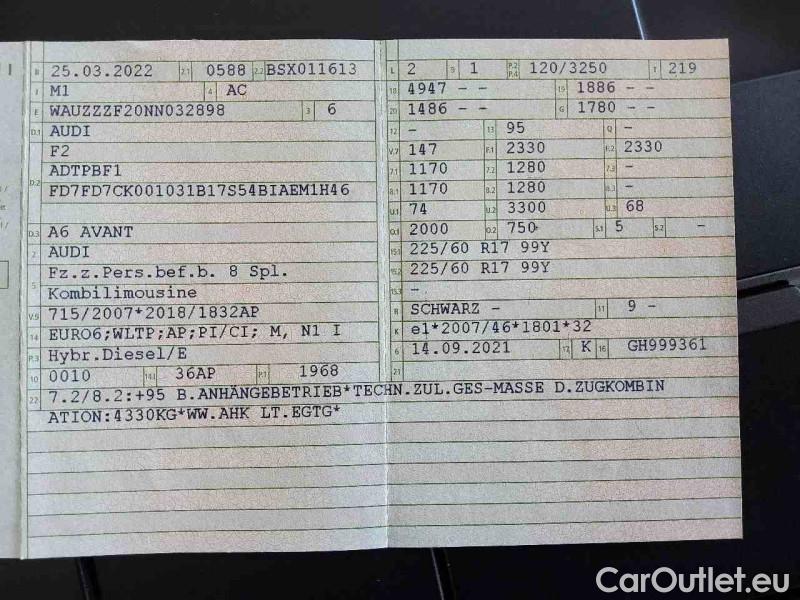 B 25.03.2022 2.1 0588 2.2 BSX011613 L 2 9 1 P.2 P.4 120/3250 T 219
J M1 4 AC 18 4947 - - 19 1886 - -
E WAUZZZF20NN032898 3 6 20 1486 - - G 1780 - -
D.1 AUDI 12 - 13 95 Q -
F2 V.7 147 F.1 2330 F.2 2330
D.2 ADTPBF1 7.1 1170 7.2 1280 7.3 -
FD7FD7CK001031B17S54BIAEM1H46 8.1 1170 8.2 1280 8.3 -
U.1 74 U.2 3300 U.3 68
D.3 A6 AVANT O.1 2000 O.2 750 S.1 5 S.2 -
2 AUDI 15.1 225/60 R17 99Y
5 Fz.z.Pers.bef.b. 8 Spl. 15.2 225/60 R17 99Y
Kombilimousine 15.3 -
V.9 715/2007*2018/1832AP R SCHWARZ - 11 9 -
14 EURO6;WLTP;AP;PI/CI; M, N1 I K e1*2007/46*1801*32
P.3 Hybr.Diesel/E 6 14.09.2021 17 K 16 GH999361
10 0010 14.1 36AP P.1 1968 21
22 7.2/8.2:+95 B.ANHÄNGEBETRIEB*TECHN.ZUL.GES-MASSE D.ZUGKOMBIN
ATION:4330KG*WW.AHK LT.EGTG*
CarOutlet.eu